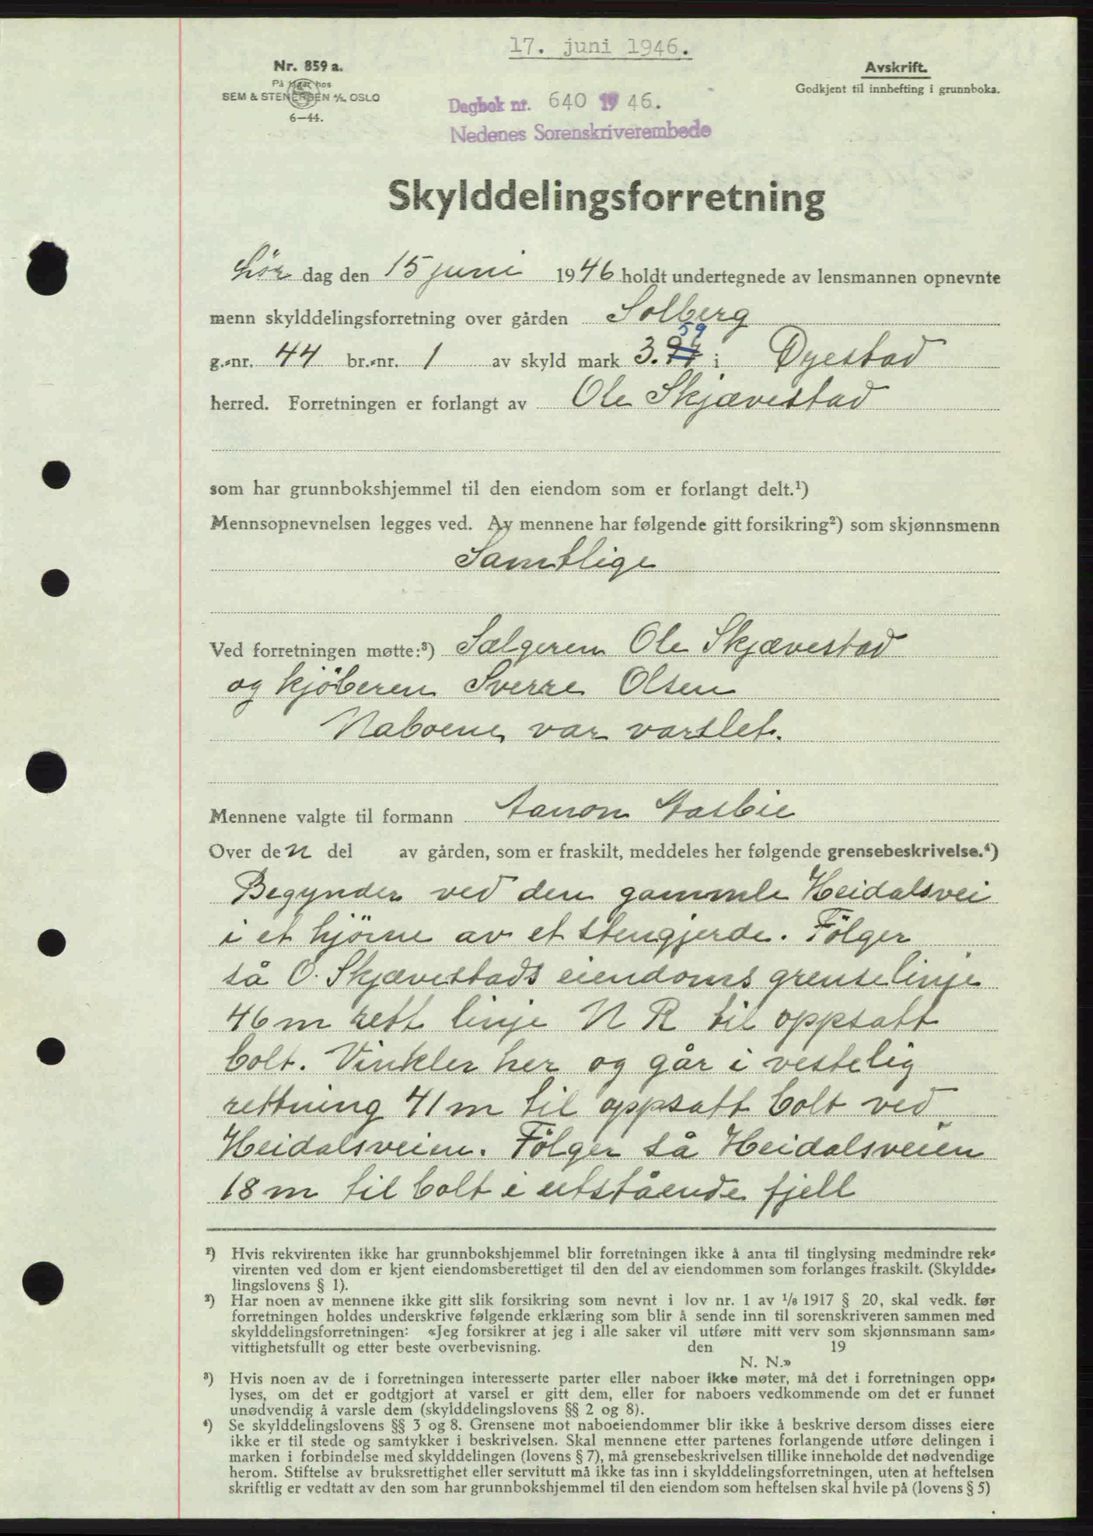 17. juni 1946.
Nr. 859 a.
På lager hos
SEM & STENERSEN A/S, OSLO
6-44.
Avskrift.
Godkjent til innhefting i grunnboka.
Dagbok nr. 640 1946.
Nedenes Sorenskriverembede
Skylddelingsforretning
Lør dag den 15 juni 1946 holdt undertegnede av lensmannen opnevnte
menn skylddelingsforretning over gården Solberg
59
g.-nr. 44 br.-nr. 1 av skyld mark 3. i Øyestad
herred. Forretningen er forlangt av Ole Skjævestad
som har grunnbokshjemmel til den eiendom som er forlangt delt.¹)
Mennsopnevnelsen legges ved. Av mennene har følgende gitt forsikring²) som skjønnsmenn
Samtlige
Ved forretningen møtte:³) Sælgeren Ole Skjævestad
og kjøberen Sverre Olsen
Naboene var varslet.
Mennene valgte til formann Aanon
Over den del av gården, som er fraskilt, meddeles her følgende grensebeskrivelse.⁴)
Begynder ved den gammle Heidalsvei
i et hjørne av et stengjerde. Følger
så O. Skjævestads eiendoms grenselinje
46 m rett linje N R til oppsatt
bolt. Vinkler her og går i vestelig
rettning 41 m til oppsatt bolt ved
Heidalsveien. Følger så Heidalsveien
18 m til bolt i utstående fjell
¹) Hvis rekvirenten ikke har grunnbokshjemmel blir forretningen ikke å anta til tinglysing medmindre rek-
virenten ved dom er kjent eiendomsberettiget til den del av eiendommen som forlanges fraskilt. (Skyldde-
lingslovens § 1).
²) Har noen av mennene ikke gitt slik forsikring som nevnt i lov nr. 1 av 1/6 1917 § 20, skal vedk. før
forretningen holdes underskrive følgende erklæring som blir å sende inn til sorenskriveren sammen med
skylddelingsforretningen: «Jeg forsikrer at jeg i alle saker vil utføre mitt verv som skjønnsmann sam-
vittighetsfullt og etter beste overbevisning. den 19
N. N.»
³) Hvis noen av de i forretningen interesserte parter eller naboer ikke møter, må det i forretningen opp-
lyses, om det er godtgjort at varsel er gitt dem, eller for naboers vedkommende om det er funnet
unødvendig å varsle dem (skylddelingslovens §§ 2 og 8).
⁴) Se skylddelingslovens §§ 3 og 8. Grensene mot naboeiendommer blir ikke å beskrive dersom disses eiere
ikke er til stede og samtykker i beskrivelsen. Skal mennene etter partenes forlangende utføre delingen i
marken i forbindelse med skylddelingen (lovens § 7), må grensebeskrivelsen tillike inneholde det nødvendige
herom. Stiftelse av bruksrettighet eller servitutt må ikke tas inn i skylddelingsforretningen, uten at heftelsen
skriftlig er vedtatt av den som har grunnbokshjemmel til den eiendom som heftelsen skal hvile på (lovens § 5)